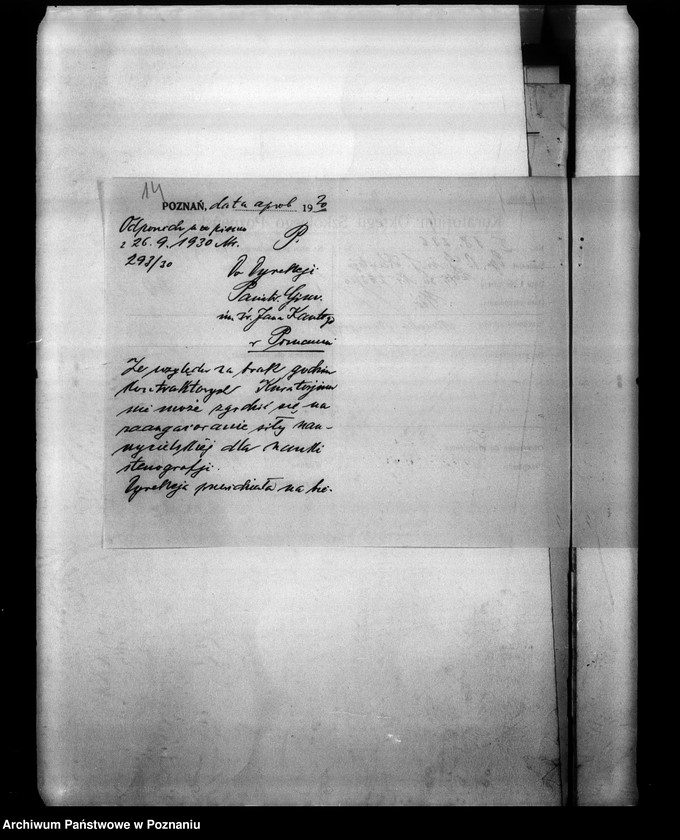 14
POZNAŃ, data aprob 1930
Odpowiedź na pismo
z 26.9.1930 Nr.
293/30
P.
Do Dyrekcji
Państw. Gimn.
im. św. Jana Kantego
w Poznaniu
Ze względu na brak godzin
kontraktowych Kuratorjum
nie może zgodzić się na
zaangażowanie siły nau-
czycielskiej dla nauki
stenografji.
Dyrekcja przewidziała na bie-
Archiwum Państwowe w Poznaniu